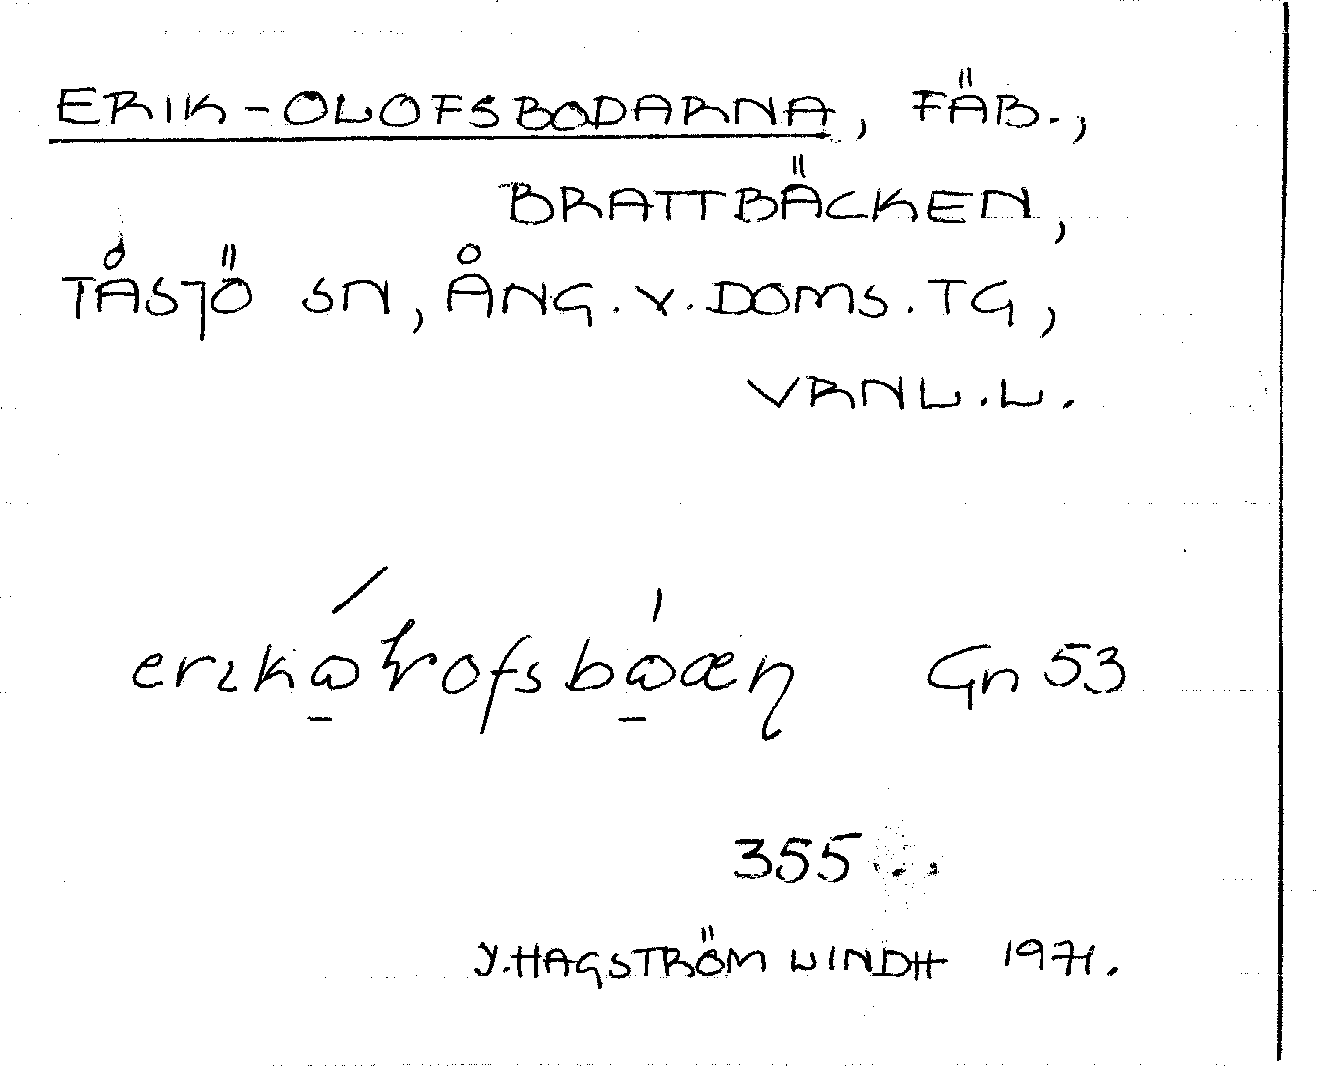 ERIK-OLOFSBODARNA, FÄB.,
BRATTBÄCKEN,
TÅSJÖ SN, ÅNG. V. DOMS. TG,
VRNL. L.
Gn 53
355
Y. HAGSTRÖM LINDH 1971.